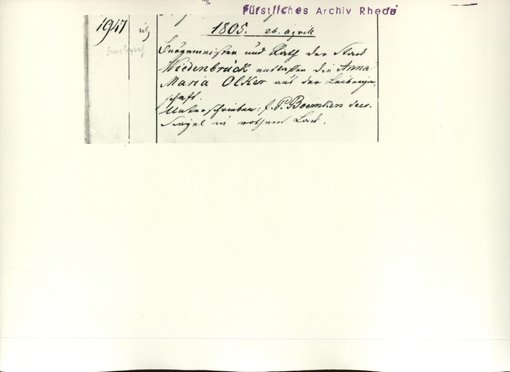 Fürstliches Archiv Rhede
1947
1805. 26. April
Burgemeister und Rath der Stadt
Wiedenbrück entlassen die Anna
Maria Olker aus der Leibeigen
schaft.
Unterschrieben: J. P. secr.
Siegel in rothem Lack.